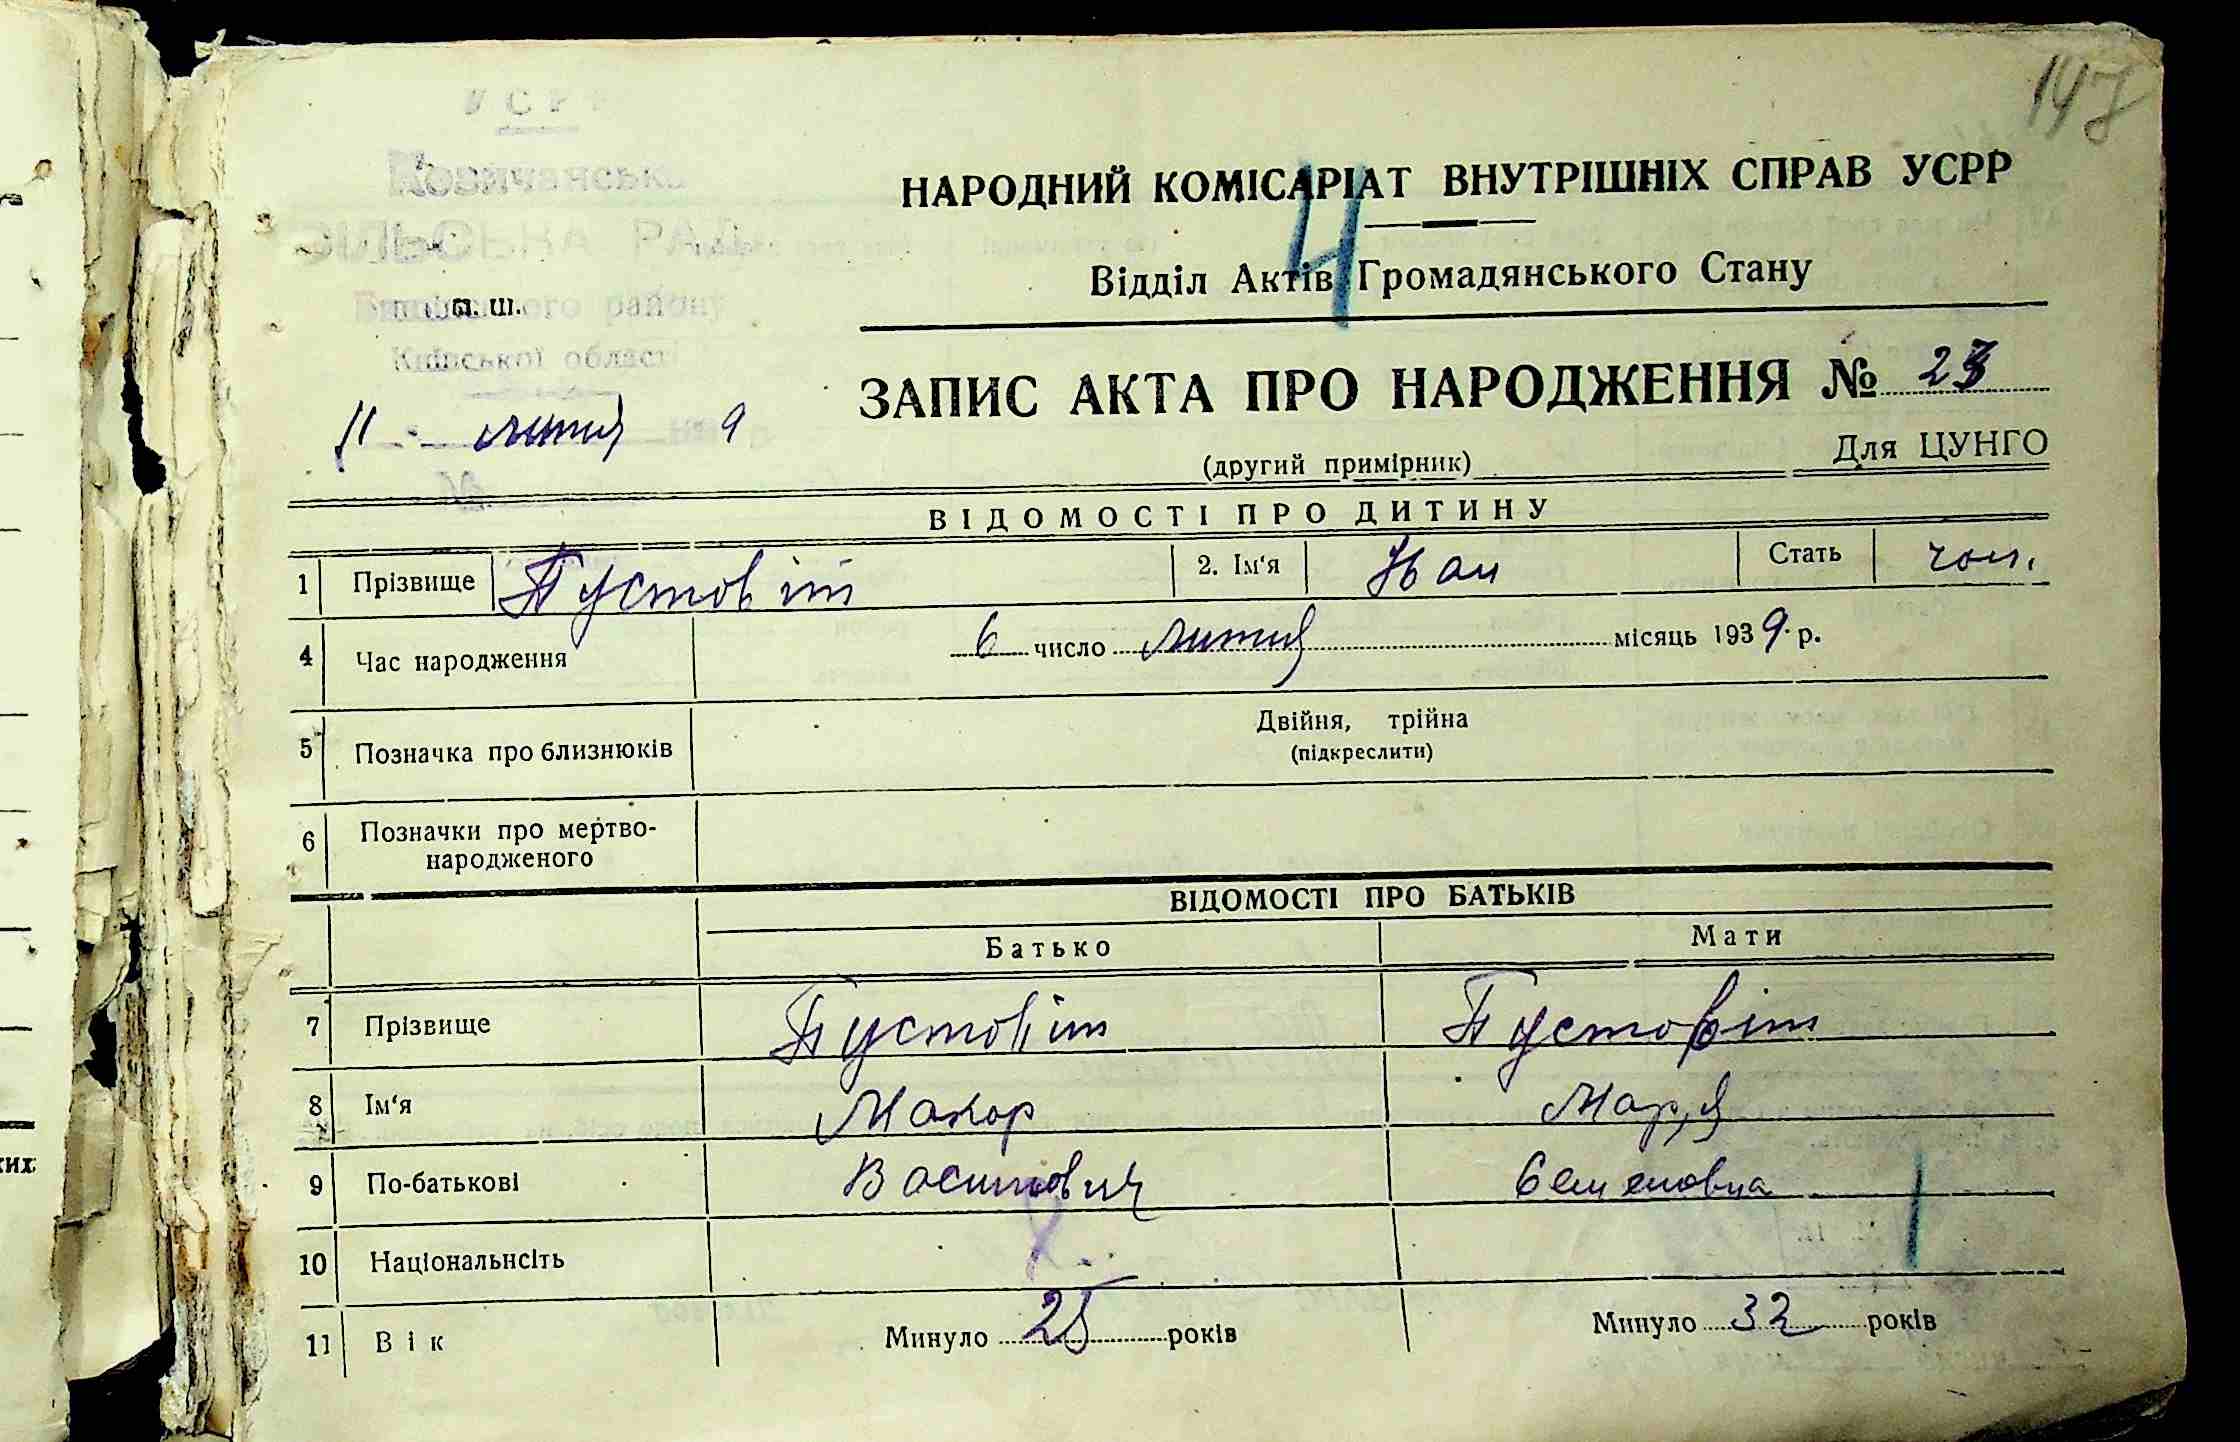 147
УСРР
СІЛЬСЬКА РАДА
району
Київської області
п. ш.
11 лютия 9
НАРОДНИЙ КОМІСАРІАТ ВНУТРІШНІХ СПРАВ УСРР
4
Відділ Актів Громадянського Стану
ЗАПИС АКТА ПРО НАРОДЖЕННЯ № 23
(другий примірник) Для ЦУНГО
ВІДОМОСТІ ПРО ДИТИНУ
1 Прізвище Пустовіт 2. Ім'я Іван Стать чол.
4 Час народження 6 число лютия місяць 1939 р.
5 Позначка про близнюків Двійня, трійна
(підкреслити)
6 Позначки про мертво-
народженого
ВІДОМОСТІ ПРО БАТЬКІВ
Батько Мати
7 Прізвище Пустовіт Пустовіт
8 Ім'я Макар Марія
9 По-батькові Василович Семеновна
10 Національнсіть
11 Вік Минуло 25 років Минуло 32 років